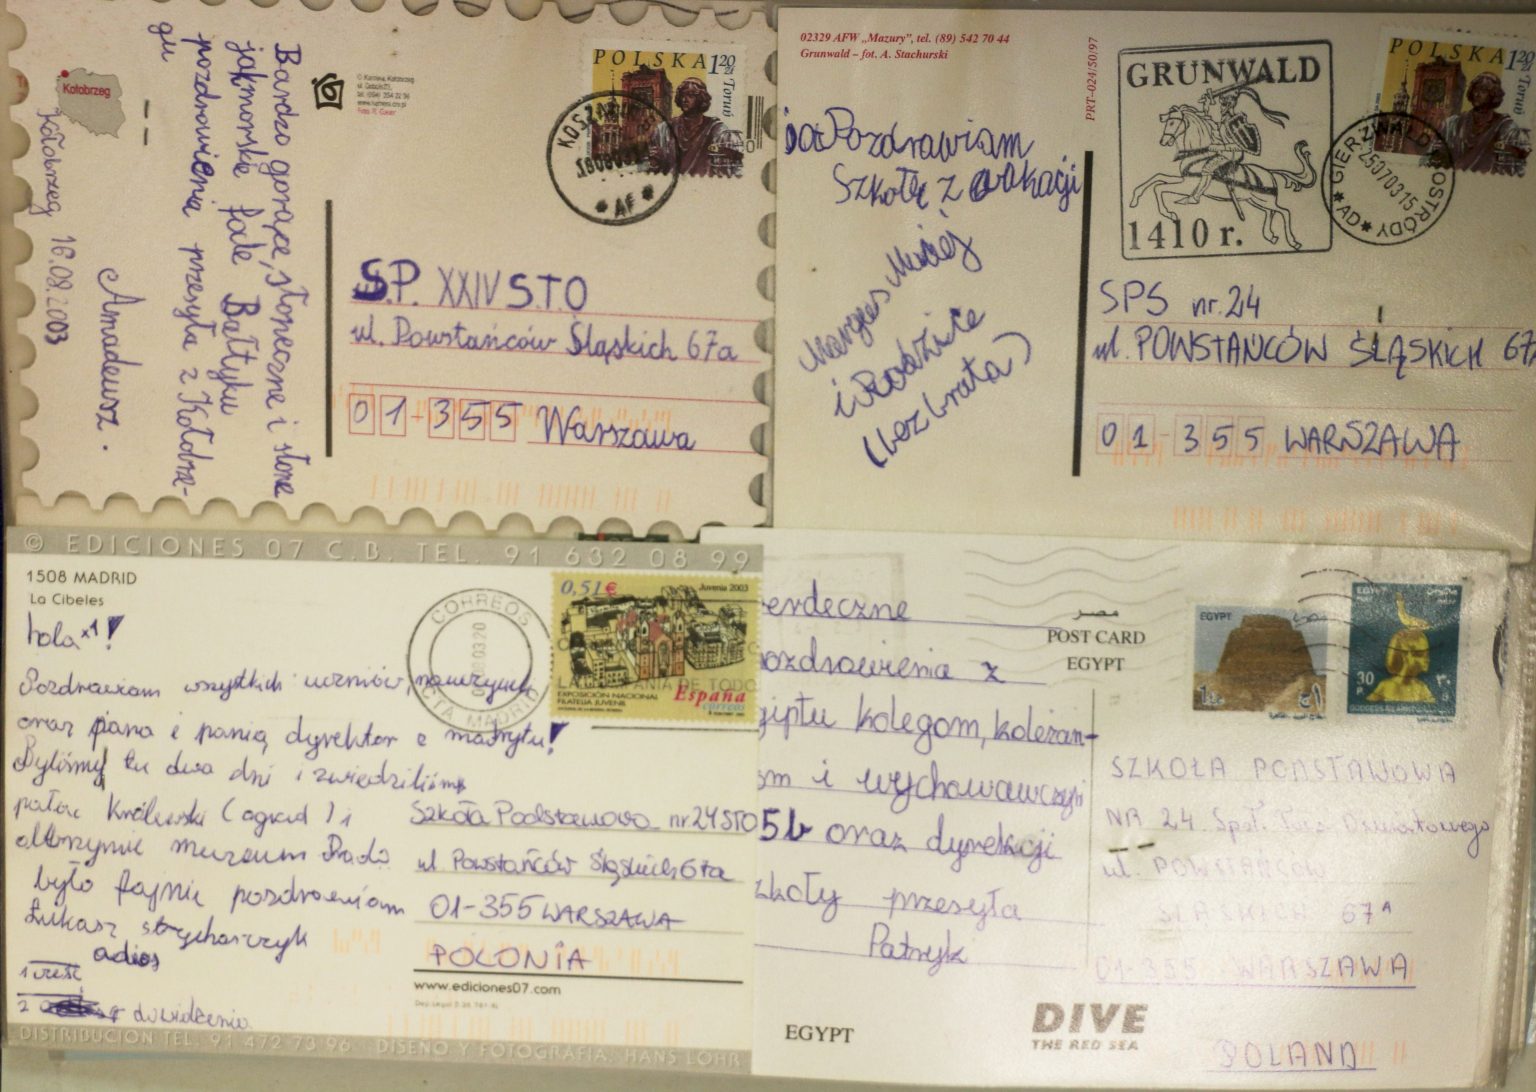 Kołobrzeg
Kołobrzeg 16.08.2003
Bardzo gorące, słoneczne i słone
jak morskie fale Bałtyku
pozdrowienia przesyła z Kołobrze-
gu
Amadeusz.
POLSKA 1 20 zł
Toruń
AF
S.P. XXIV S.T.O
ul. Powstańców Śląskich 67a
01-355 Warszawa
02329 AFW „Mazury”, tel. (89) 542 70 44
Grunwald – fot. A. Stachurski
PRT-024/S0/97
Pozdrawiam
Szkołę z wakacji
Maciej
i Rodzice
(bez brata)
GRUNWALD
1410 r.
POLSKA 1 20
Toruń
GIERZWAŁD K OSTRÓDY
250703 15
AD
SPS nr. 24
ul. POWSTAŃCÓW ŚLĄSKICH 67
01-355 WARSZAWA
© EDICIONES 07 C.B. TEL. 91 632 08 99
1508 MADRID
La Cibeles
hola x1!
Pozdrawiam wszystkich uczniów, nauczycieli
oraz pana i panią dyrektor z madrytu!
Byliśmy tu dwa dni i zwiedziliśmy
pałac Królewski (ogród) i
olbrzymie muzeum Prado
było fajnie pozdrawiam
Łukasz strycharczyk
adios
1 cześć
2 do widzenia
CORREOS
MADRID
0,51€
Juvenia 2003
EXPOSICIÓN NACIONAL
FILATELIA JUVENIL
España
correos
Szkoła Podstawowa nr 24 STO
ul Powstańców Śląskich 67a
01-355 WARSZAWA
POLONIA
www.ediciones07.com
DISTRIBUCION TEL. 91 472 73 96 DISEÑO Y FOTOGRAFIA: HANS LOHR
erdeczne
ozdrowienia z
giptu kolegom, koleżan-
om i wychowawczyni
5b oraz dyrekcji
zkoły przesyła
Patryk
مصر
POST CARD
EGYPT
EGYPT
EGYPT
30
P
SZKOŁA PODSTAWOWA
NR 24 Społ. Tow. Oświatowego
ul. POWSTAŃCÓW
ŚLĄSKICH 67A
01-355 WARSZAWA
POLAND
EGYPT
DIVE
THE RED SEA